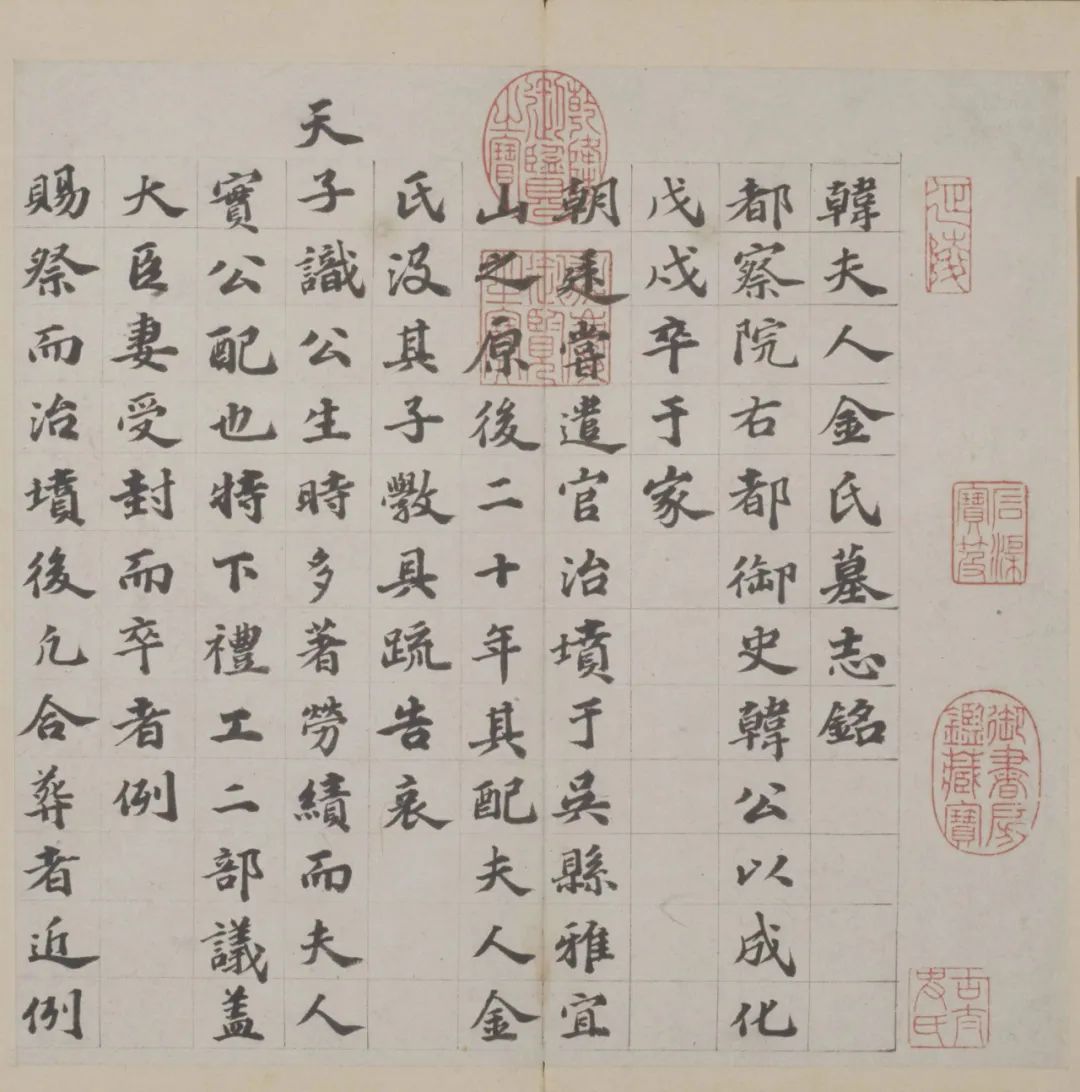 韓夫人金氏墓志銘
都察院右都御史韓公以成化
戊戌卒于家
朝廷嘗遣官治墳于吳縣雅宜
山之原後二十年其配夫人金
氏沒其子斆具疏告哀
天子識公生時多著勞績而夫人
實公配也特下禮工二部議蓋
大臣妻受封而卒者例
賜祭而治墳後凡合葬者近例
乾隆御覽之寶
御書房鑑藏寶